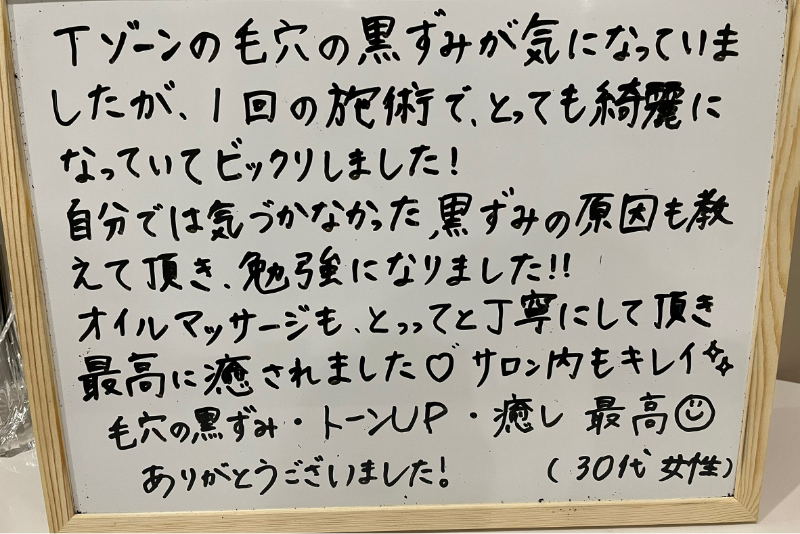 Tゾーンの毛穴の黒ずみが気になっていま
したが、1回の施術で、とっても綺麗に
なっていてビックリしました!
自分では気づかなかった、黒ずみの原因も教
えて頂き、勉強になりました!!
オイルマッサージも、とってと丁寧にして頂き
最高に癒されました♡ サロン内もキレイ✨
毛穴の黒ずみ・トーンUP・癒し 最高☺
ありがとうございました! (30代 女性)